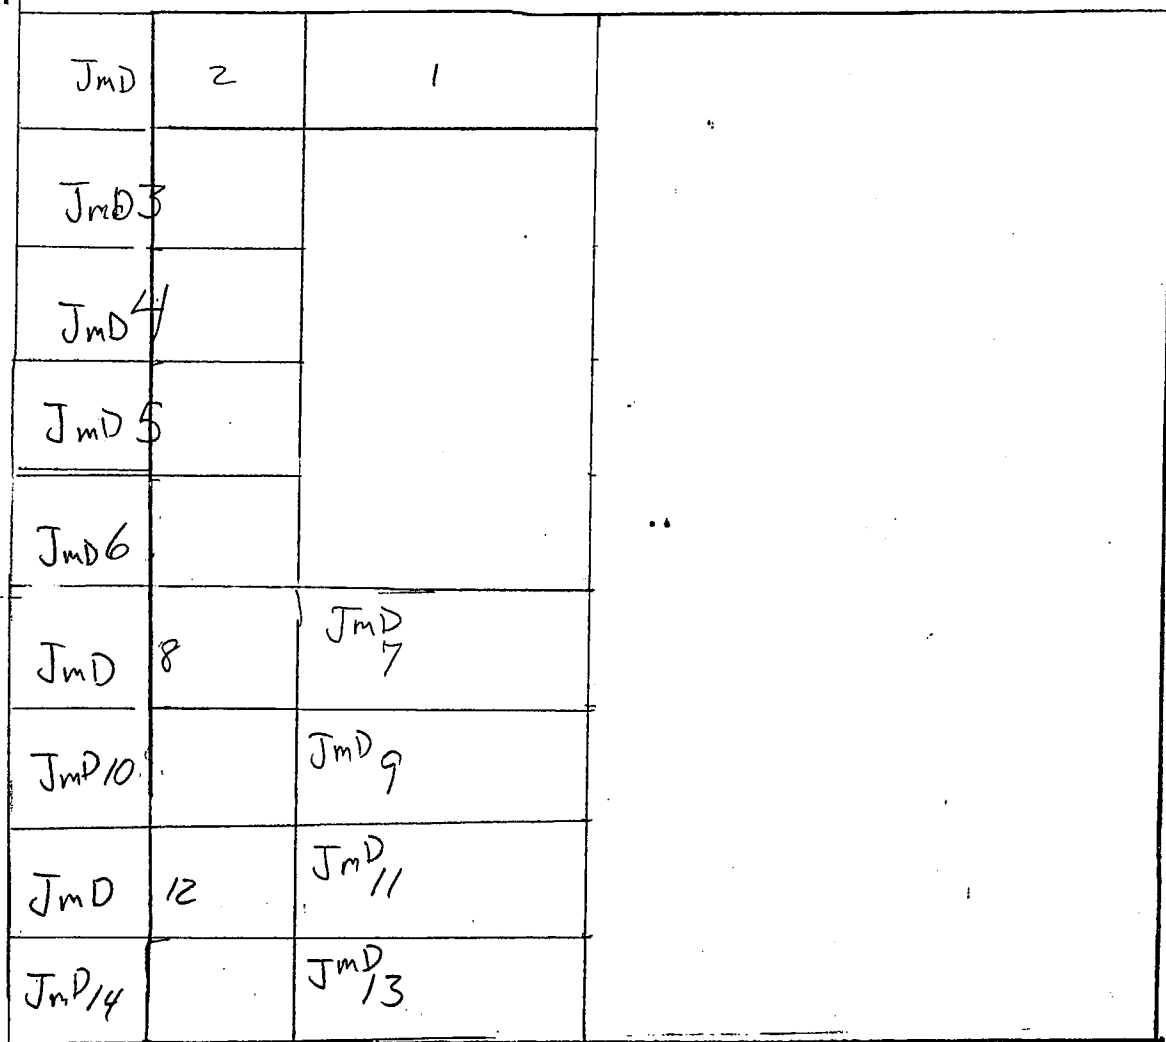 JmD 2 1
JmD 3
JmD 4
JmD 5
JmD 6
JmD 8 JmD 7
JmD 10 JmD 9
JmD 12 JmD 11
JmD 14 JmD 13